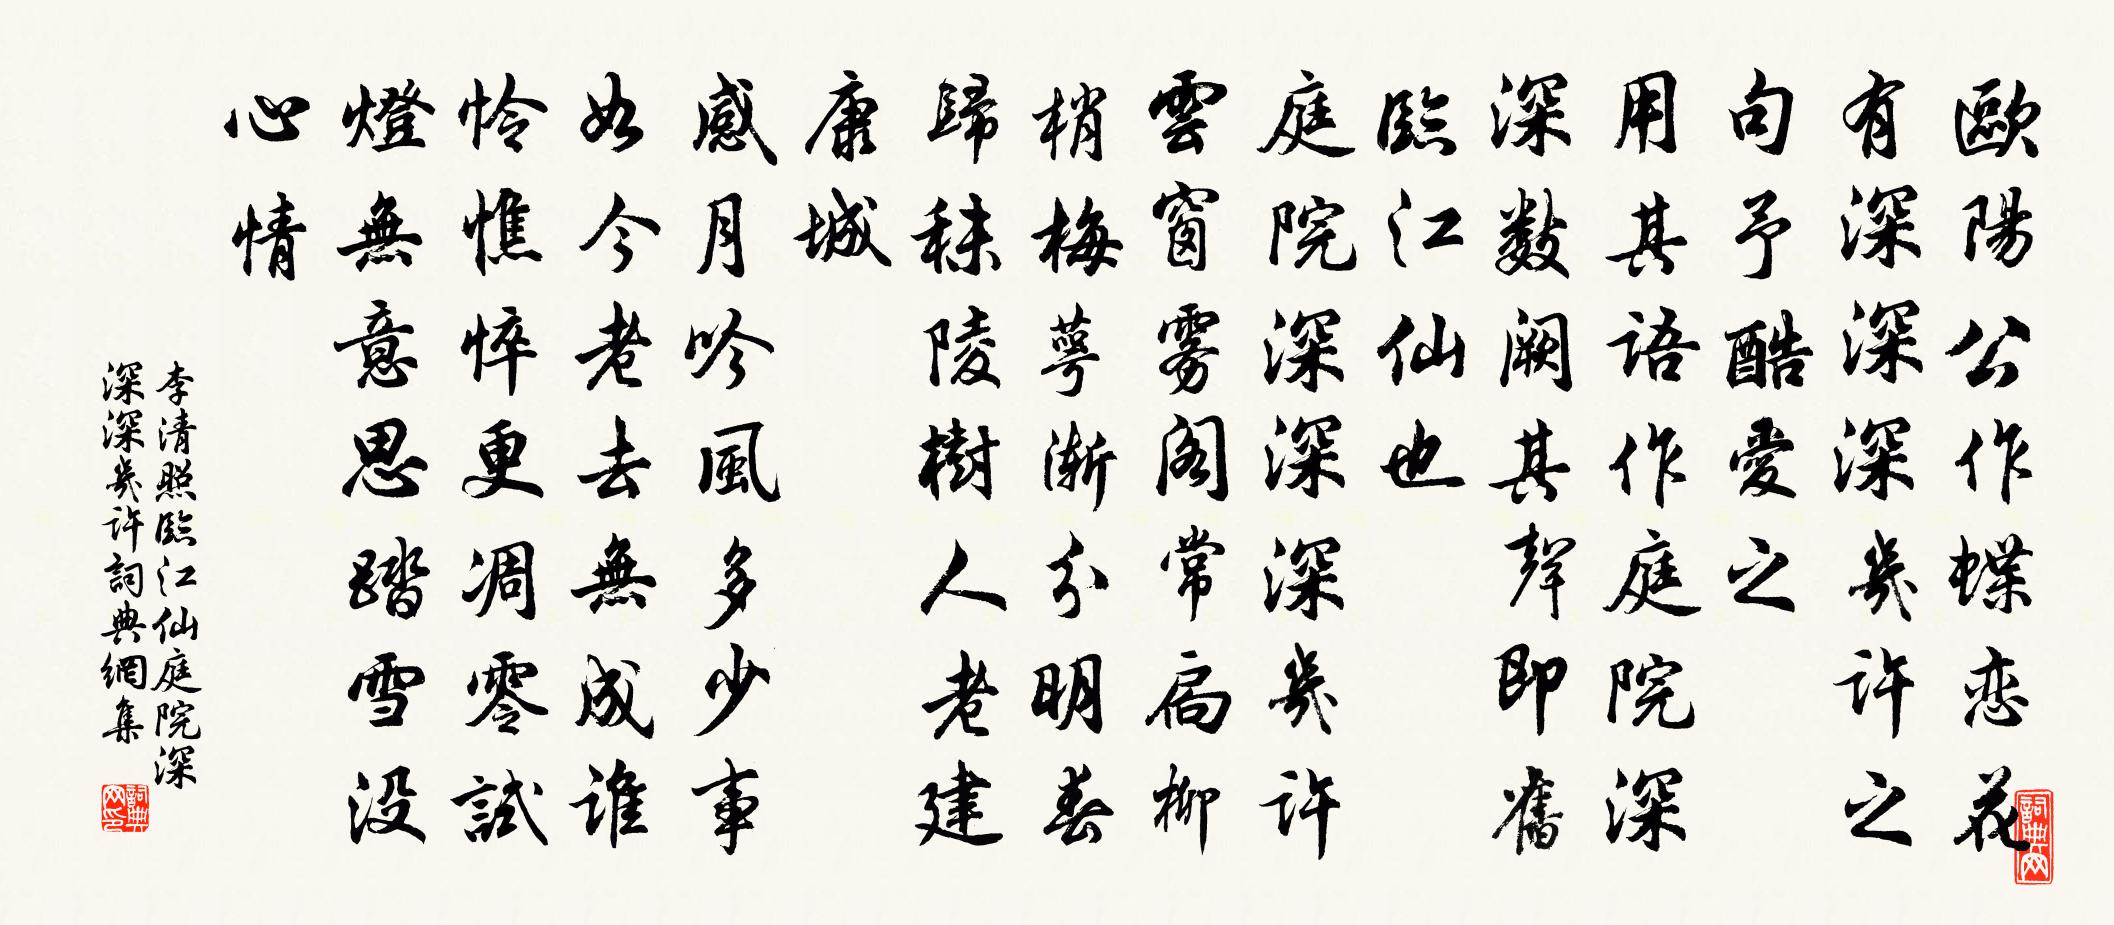 歐陽公作蝶恋花
有深深深幾許之
句予酷愛之
用其語作庭院深
深數闕其聲即舊
臨江仙也
庭院深深深幾許
雲窗雾閣常扃柳
梢梅萼漸分明春
歸秣陵樹人老建
康城
感月吟風多少事
如今老去無成誰
怜憔悴更凋零試
燈無意思踏雪没
心情
李清照臨江仙庭院深
深深幾許詞典網集
詞典网
詞典网印